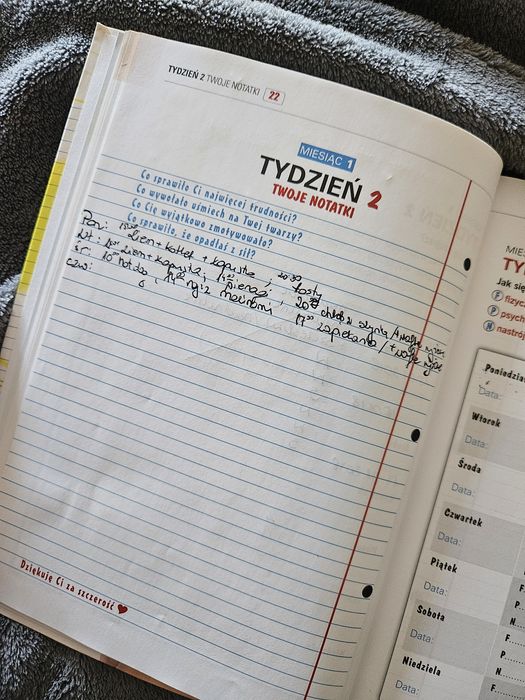 TYDZIEŃ 2 TWOJE NOTATKI 22
MIESIĄC 1
TYDZIEŃ 2
TWOJE NOTATKI
Co sprawiło Ci najwięcej trudności?
Co wywołało uśmiech na Twej twarzy?
Co Cię wyjątkowo zmotywowało?
Co sprawiło, że opadłaś z sił?
Pon: ziem + kotlet + kapusta, 20:30 tosty
Wt: ziem + kapusta, pierogi, 20 chleb z szynką /
śr: 10 hot dog, 14 ryż z 17 zapiekanka /
czw:
Dziękuję Ci za szczerość
MIE
TY
Jak się
F fizyc
P psych
N nastrój
Poniedzia
Data:
Wtorek
Data:
Środa
Data:
Czwartek
Data:
Piątek
Data:
F
P
N
Sobota
Data:
F
P
N
Niedziela
Data:
F